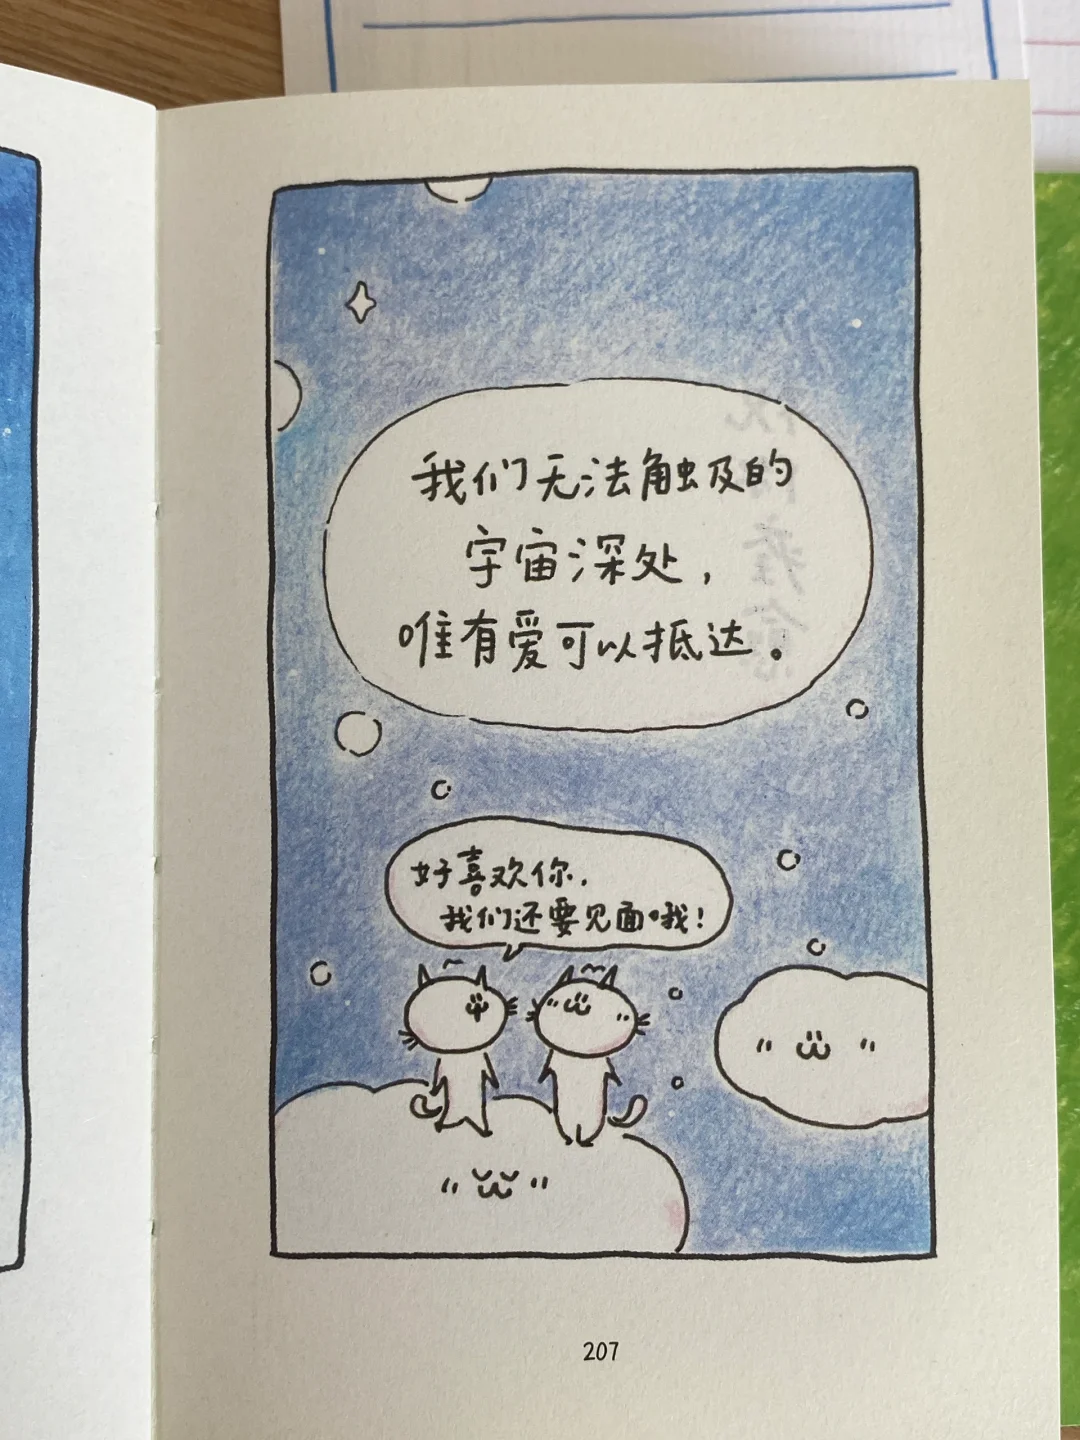 我们无法触及的
宇宙深处，
唯有爱可以抵达。
好喜欢你，
我们还要见面哦！
207